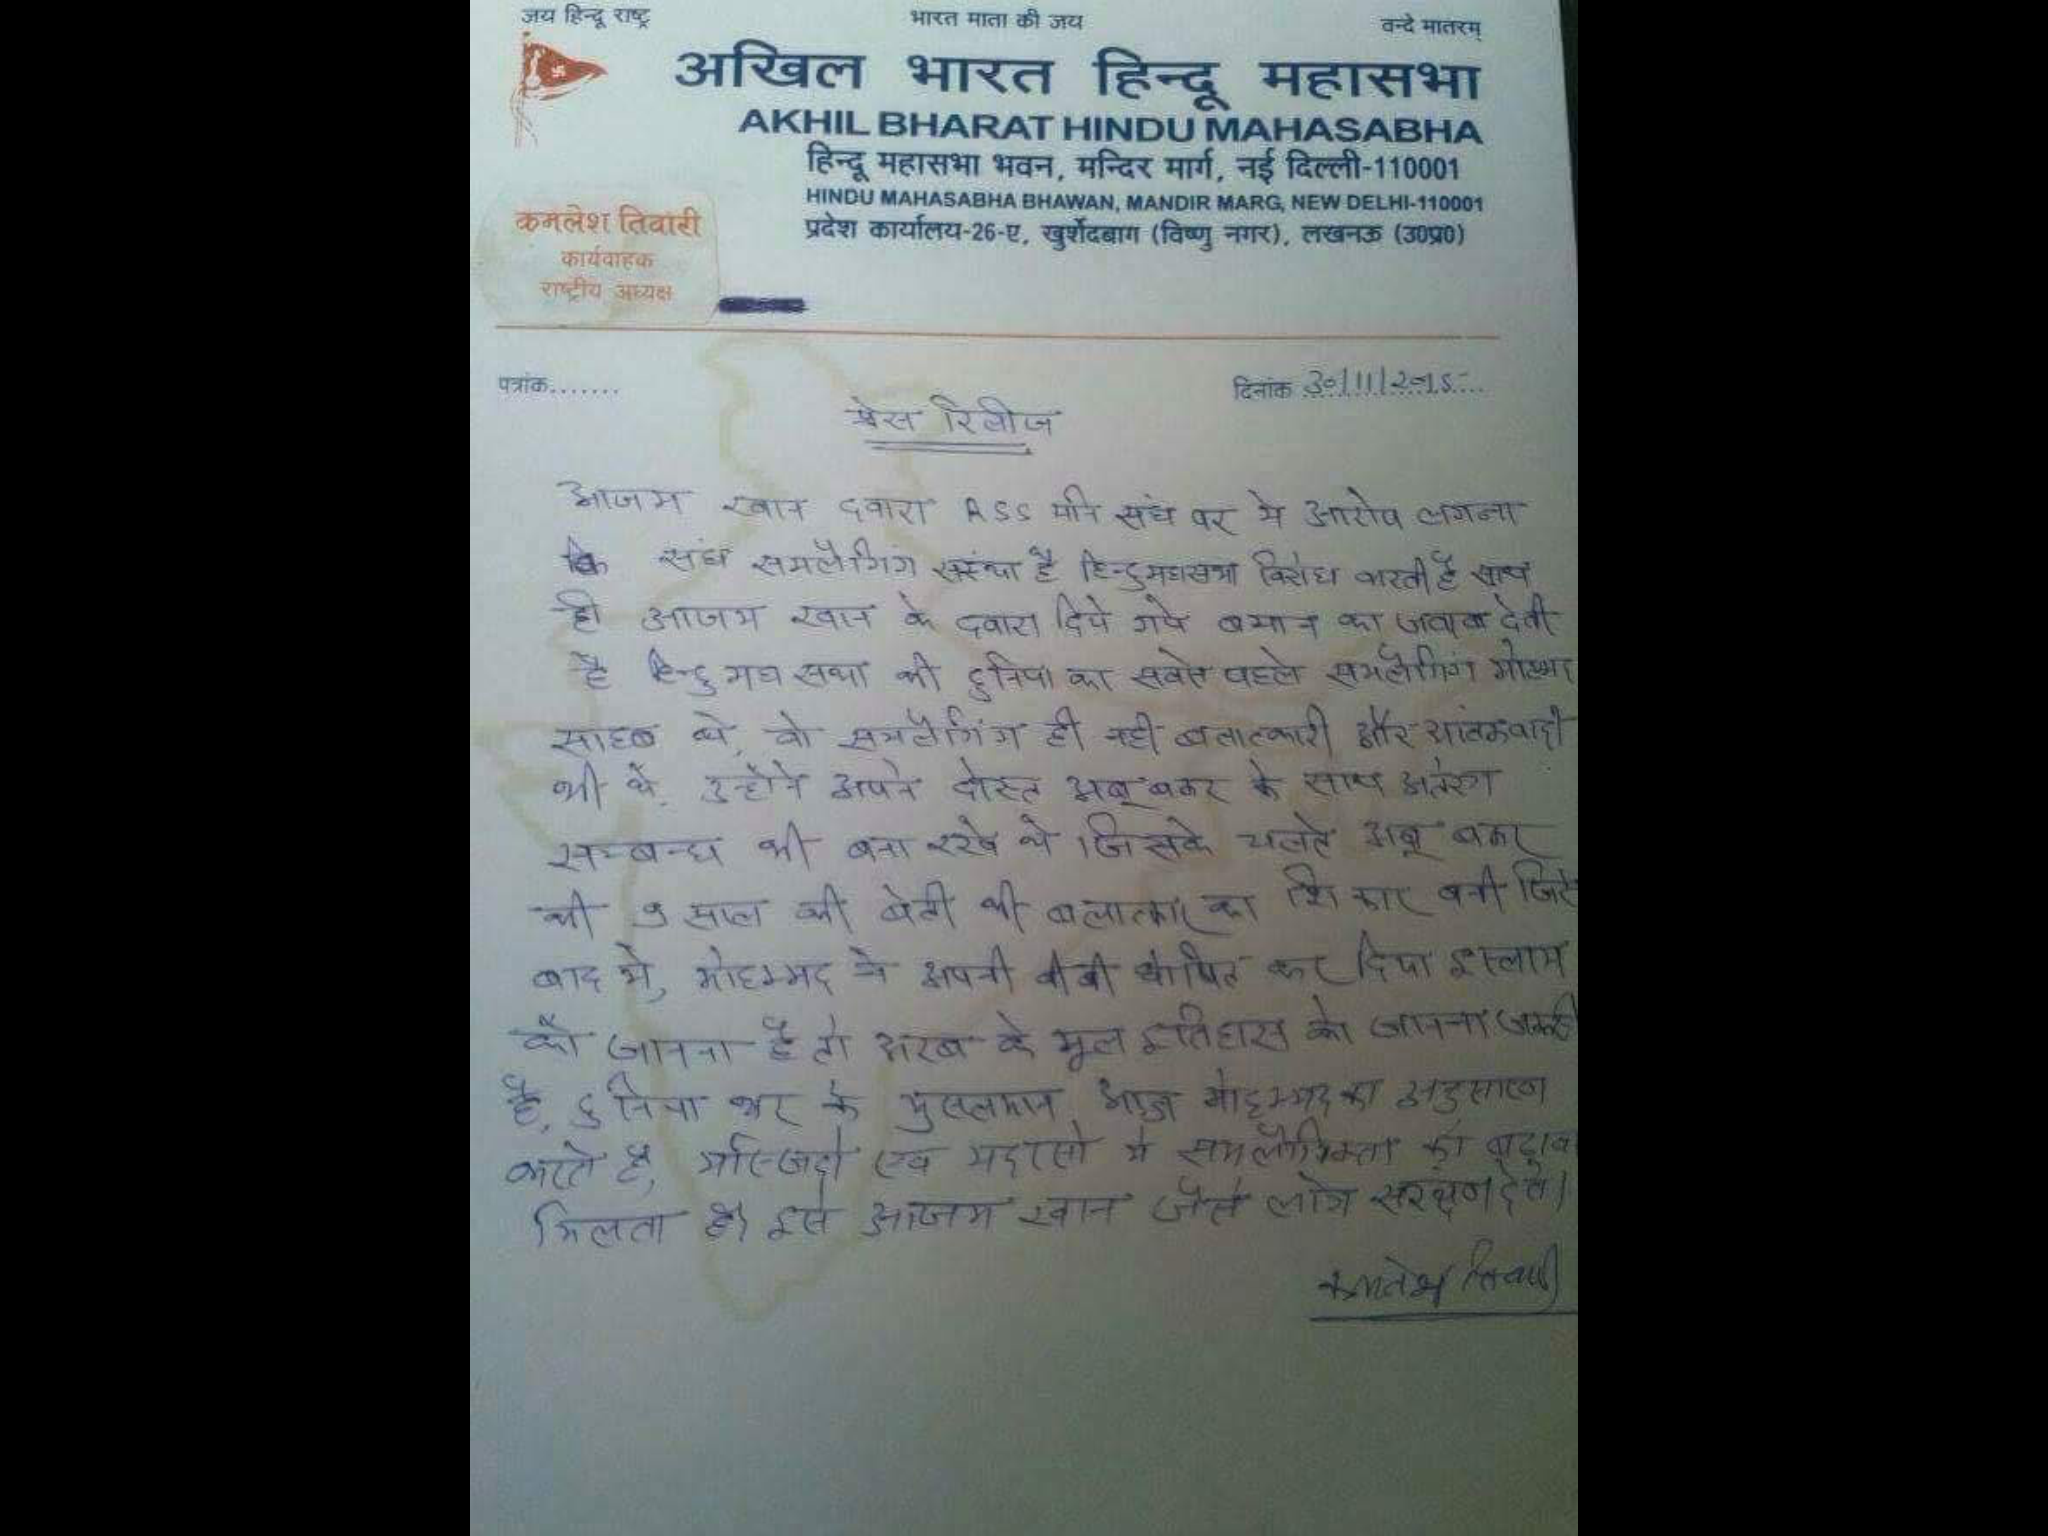 जय हिन्दू राष्ट्र
भारत माता की जय
वन्दे मातरम्
अखिल भारत हिन्दू महासभा
AKHIL BHARAT HINDU MAHASABHA
हिन्दू महासभा भवन, मन्दिर मार्ग, नई दिल्ली-110001
HINDU MAHASABHA BHAWAN, MANDIR MARG, NEW DELHI-110001
प्रदेश कार्यालय-26-ए, खुर्शेदबाग (विष्णु नगर), लखनऊ (उ०प्र०)
कमलेश तिवारी
कार्यवाहक
राष्ट्रीय अध्यक्ष
पत्रांक.......
दिनांक 30/11/2015
प्रेस रिलीज
आजम खान द्वारा RSS संघ पर ये आरोप लगना
कि संघ समलैगिंग संस्था है हिन्दुमहासभा विरोध करती है साथ
ही आजम खान के द्वारा दिये गये बयान का जवाब देती
है हिन्दु महासभा की दुनिया का सबसे पहले समलैगिंग
साहब थे, वो समलैगिंग ही नही बलात्कारी और आंतकवादी
भी थे, उन्होने अपने दोस्त अबू बकर के साथ अतंरग
सम्बन्ध भी बना रखे थे जिसके चलते अबू बकर
की 9 साल की बेटी भी बलात्कार का शिकार बनी जिसे
बाद मे, मोहम्मद ने अपनी बीबी घोषित कर दिया इस्लाम
को जानना है तो अरब के मूल इतिहास को जानना जरूरी
है, दुनिया भर के मुसलमान आज मोहम्मद का अनुसरण
करते है, मस्जिदो एव मदरसो मे समलैगिकता को बढ़ावा
मिलता है। इसे आजम खान जैसे लोग सरक्षण देते।
कमलेश तिवारी